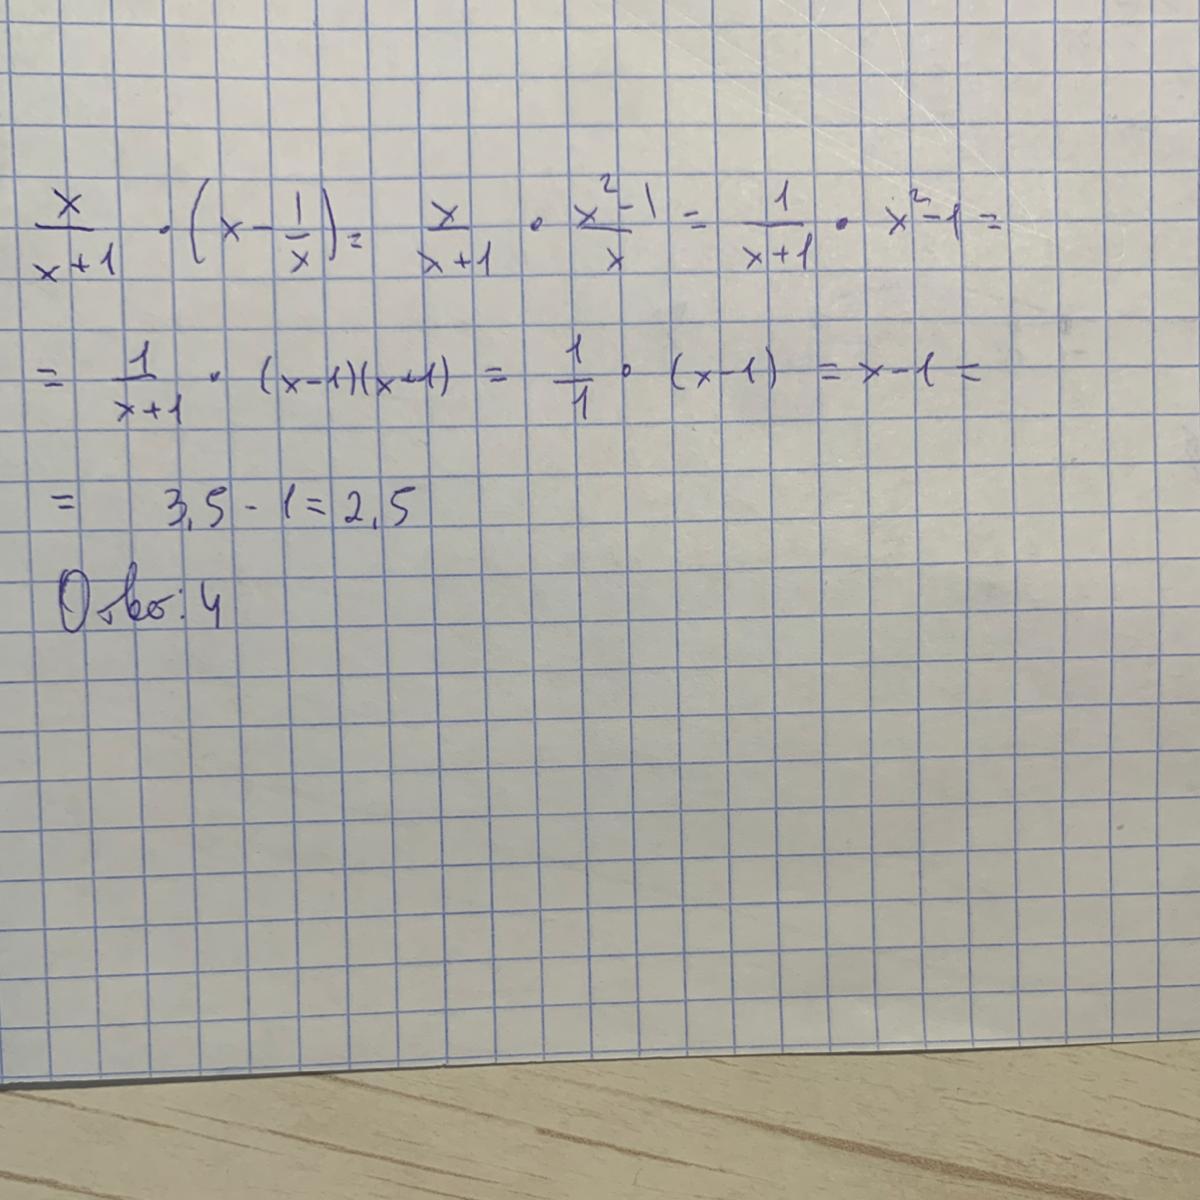 x/(x+1) · (x - 1/x) = x/(x+1) · (x²-1)/x = 1/(x+1) · x²-1 =
= 1/(x+1) · (x-1)(x+1) = 1/1 · (x-1) = x-1 =
= 3,5 - 1 = 2,5
: 4